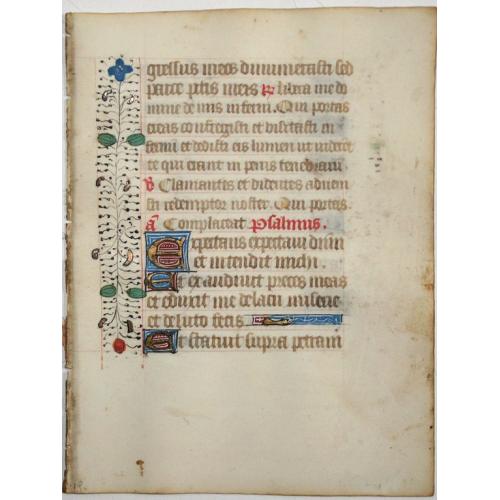 gressus meos dinumerasti sed
parce pctis meis R Libera me do
mine de uiis inferni. Qui portas
ereas confregisti et visitasti in
fernu et dedisti eis lumen ut videret
te qui erant in penis tenebraru
V Clamantes et dicentes adueni
sti redemptor noster. Qui portas.
a Complaceat Psalmus.
Expectans expectaui dnm
et intendit michi.
Et exaudiuit preces meas
et eduxit me de lacu miserie
et de luto fecis
Et statuit supra petram